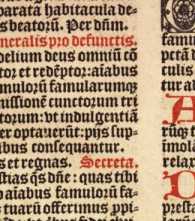 parata habitacula de=
s beatorū. Per dn̄m.
neralis pro defunctis.
delium deus omniū cō
tor et redēptor: aīabus
mulorū famularumq̄
missionē cunctorum tri
torum: vt indulgentiā
er optauerūt: pijs sup=
ibus consequantur.
s et regnas. Secreta.
stias q̄s dn̄e: quas tibi
o aīabus famulorū fa=
tuarū offerimus ppi=
famu
pctā d
tulis
tur al
A
rūq̄
imolā
relar